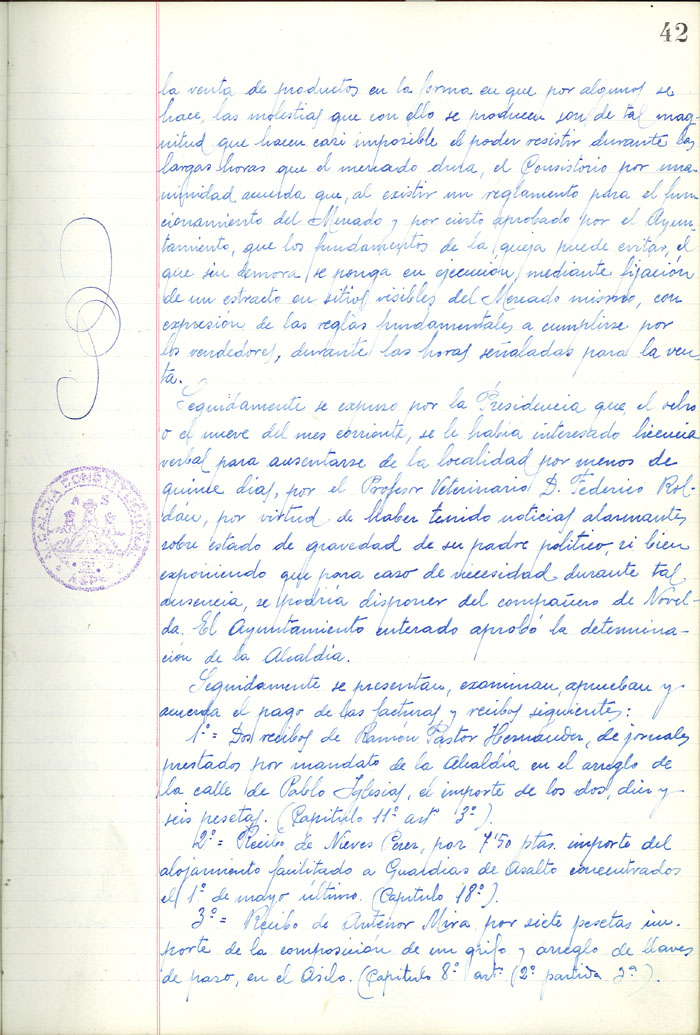 42
la venta de productos en la forma en que por algunos se
hace, las molestias que con ello se producen son de tal mag-
nitud que hacen casi imposible el poder resistir durante las
largas horas que el mercado dura, el Consistorio por una-
nimidad acuerda que, al existir un reglamento para el fun-
cionamiento del Mercado y por cierto aprobado por el Ayun-
tamiento, que los fundamentos de la queja puede evitar, el
que sin demora se ponga en ejecución, mediante fijación
de un estracto en sitios visibles del Mercado mismo, con
expresión de las reglas fundamentales a cumplirse por
los vendedores, durante las horas señaladas para la ven-
ta.
Seguidamente se expuso por la Presidencia que, el ocho
o el nueve del mes corriente, se le había interesado licencia
verbal para ausentarse de la localidad por menos de
quince días, por el Profesor Veterinario D. Federico Rol-
dán, por virtud de haber tenido noticias alarmantes
sobre estado de gravedad de su padre político, si bien
exponiendo que para caso de necesidad durante tal
ausencia, se podría disponer del compañero de Novel-
da. El Ayuntamiento enterado aprobó la determina-
ción de la Alcaldía.
Seguidamente se presentan, examinan, aprueban y
acuerda el pago de las facturas y recibos siguientes:
1º = Dos recibos de Ramón Pastor Hernández, de jornales
prestados por mandato de la Alcaldía en el arreglo de
la calle de Pablo Iglesias, el importe de los dos, diez y
seis pesetas. (Capítulo 11º artº 3º).
2º = Recibo de Nieves Pérez, por 7'50 ptas. importe del
alojamiento facilitado a Guardias de Asalto concentrados
el 1º de mayo último. (Capítulo 18º).
3º = Recibo de Antenor Mira por siete pesetas im-
porte de la composición de un grifo y arreglo de llaves
de paso, en el Asilo. (Capítulo 8º artº (2º partida 2ª).
ALCALDIA CONSTITUCIONAL
ASPE